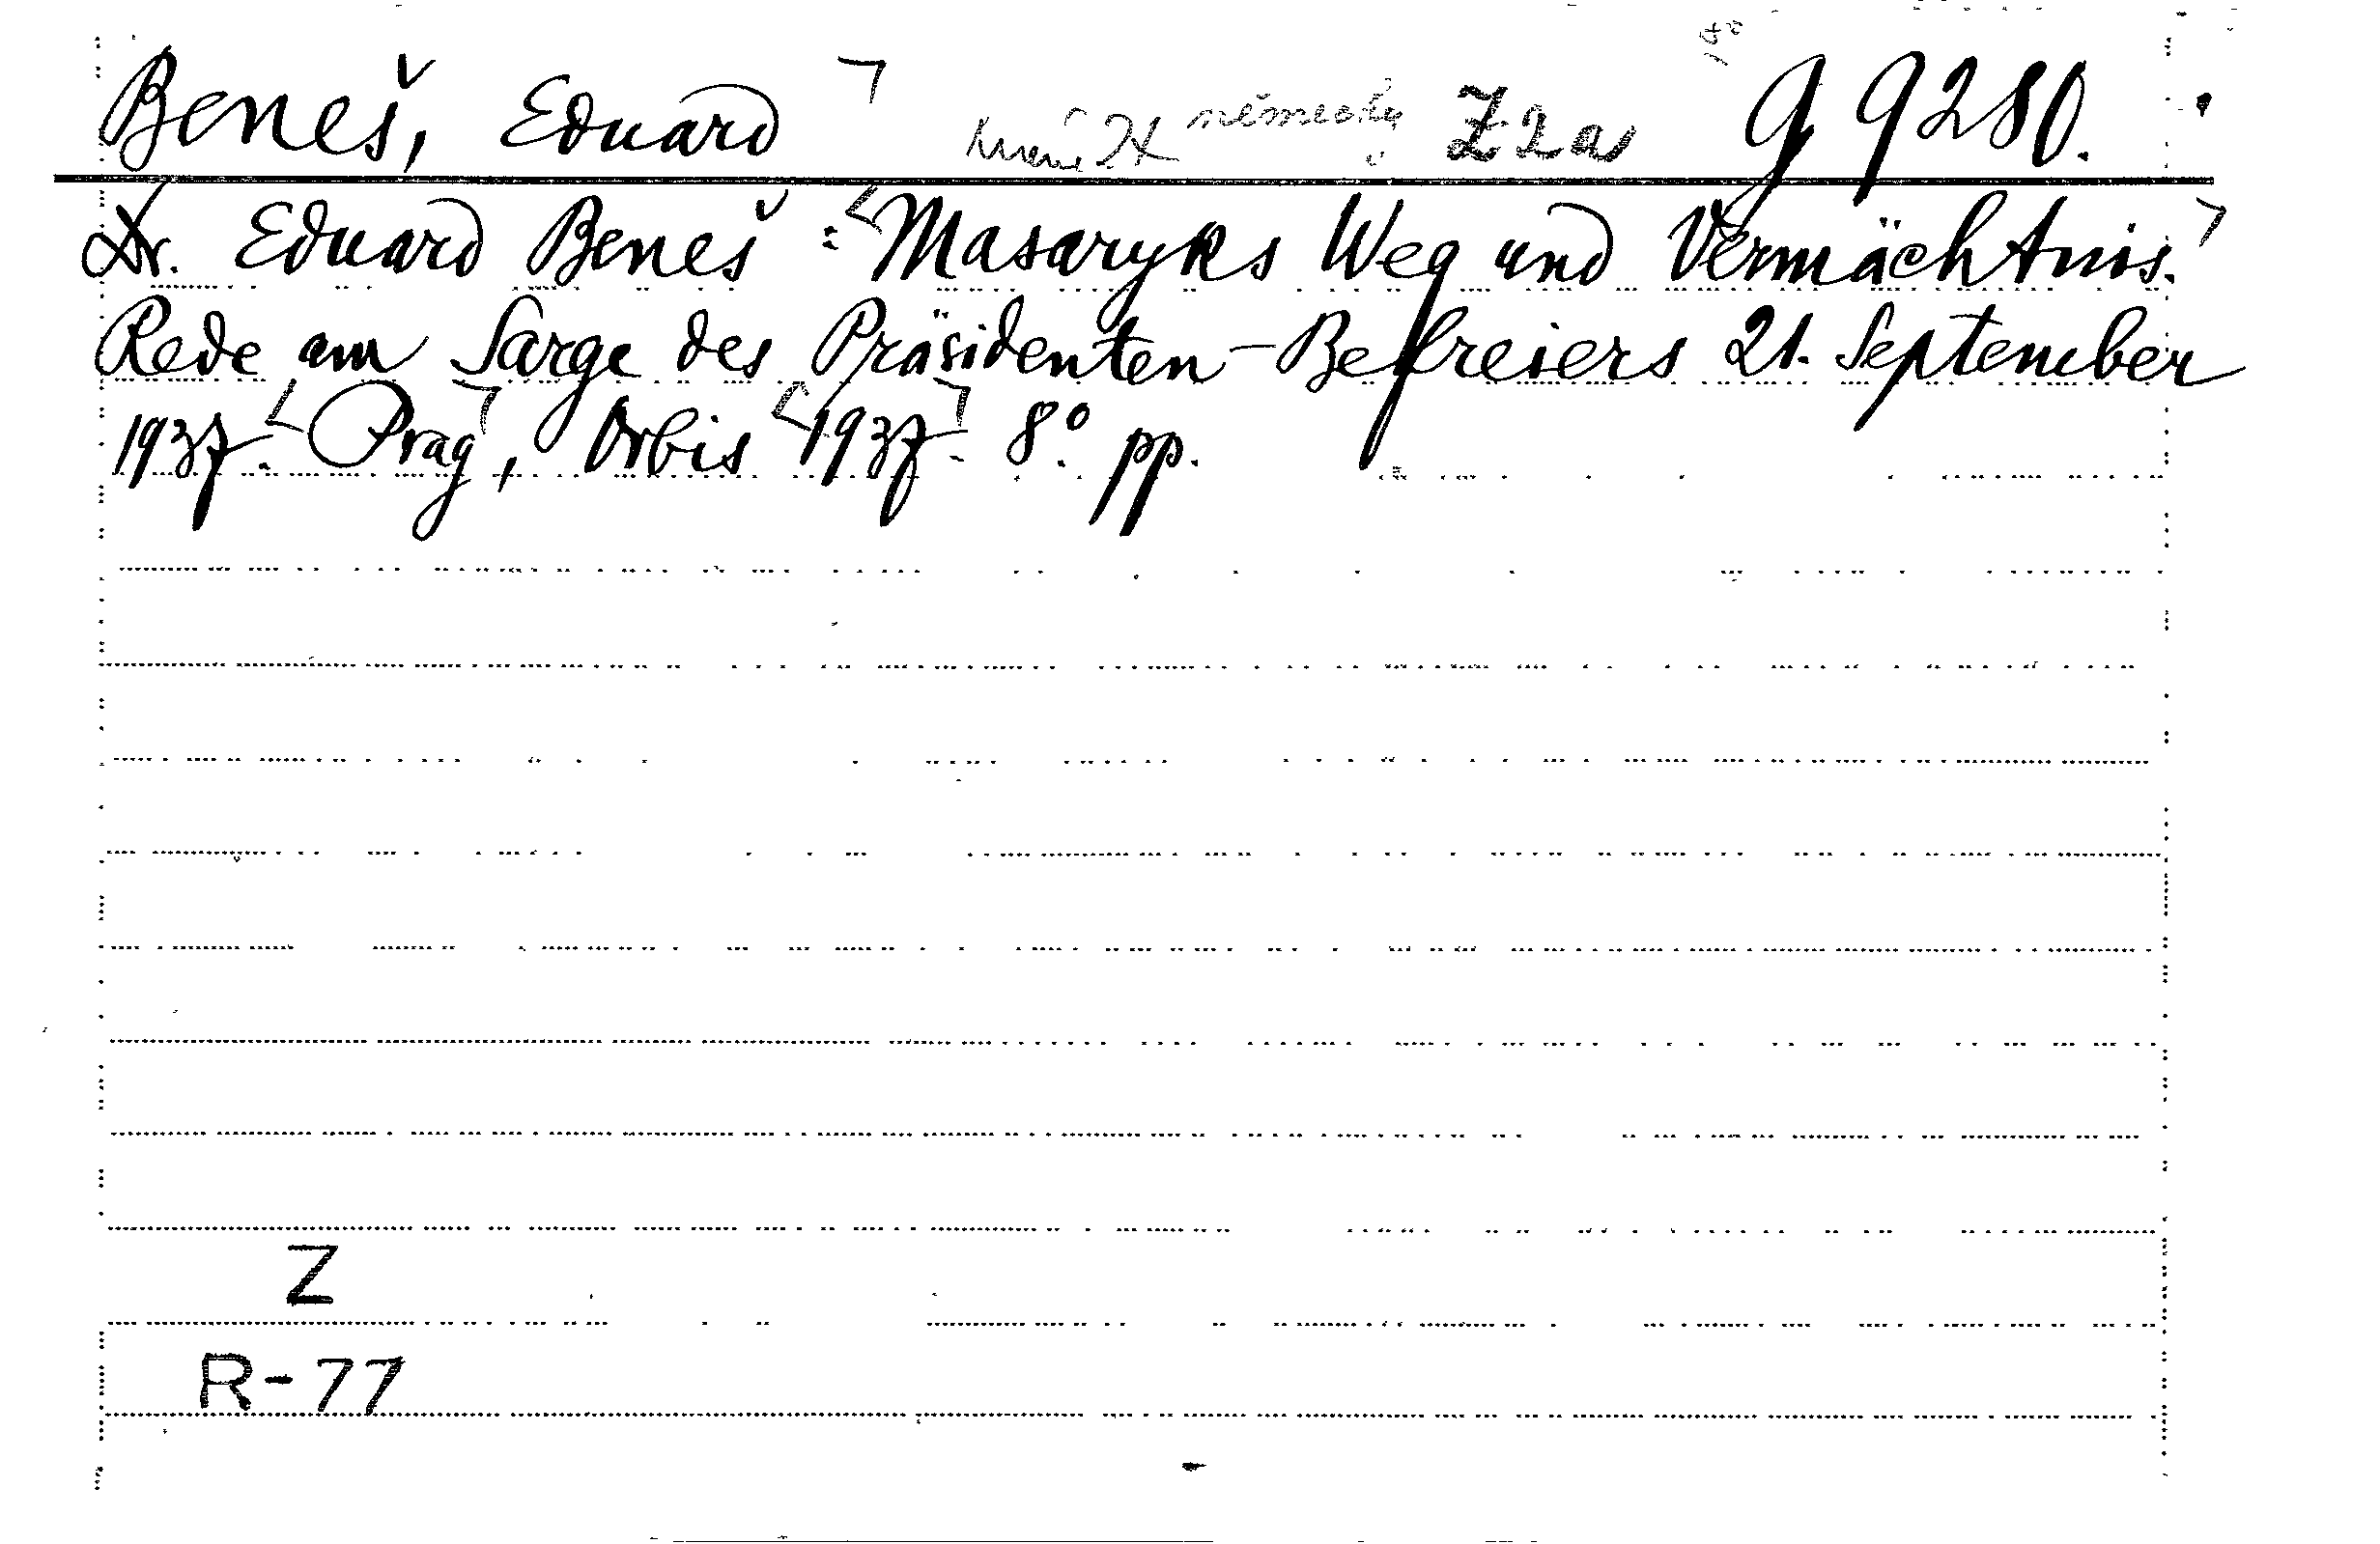 Beneš, Eduard německy Z2a g 9280.
Dr. Eduard Beneš: Masaryks Weg und Vermächtnis.
Rede am Sarge des Präsidenten-Befreiers 21. September
1937. Prag, Orbis 1937. 8°. pp.
Z
R-77